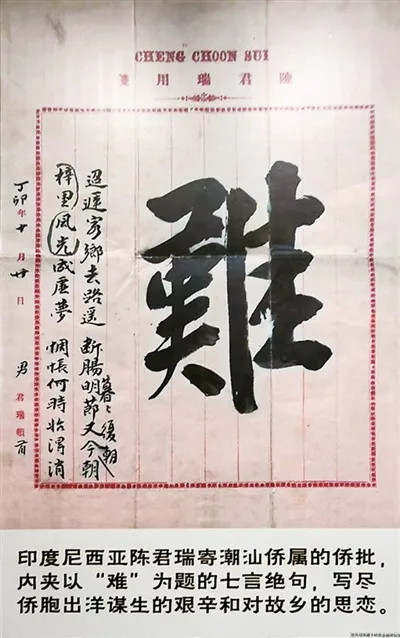 CHENG CHOON SUI
陳君瑞用箋
難
迢遞客鄉去路遥 断腸明節又今朝
暮々復朝
梓里風光成虛夢 惆悵何時始得消
丁卯年十月廿日 男君瑞頓首
印度尼西亚陈君瑞寄潮汕侨属的侨批，
内夹以“难”为题的七言绝句，写尽
侨胞出洋谋生的艰辛和对故乡的思恋。